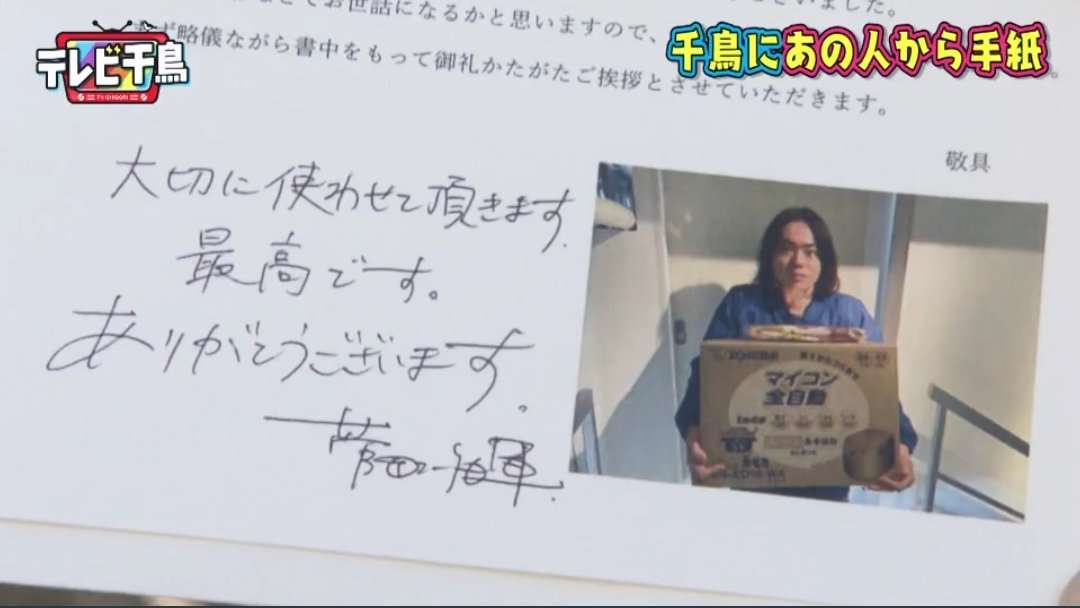 お世話になるかと思いますので、
略儀ながら書中をもって御礼かたがたご挨拶とさせていただきます。
敬具
テレビ千鳥
千鳥にあの人から手紙
大切に使わせて頂きます.
最高です。
ありがとうございます。
菅田将暉.
マイコン
全自動